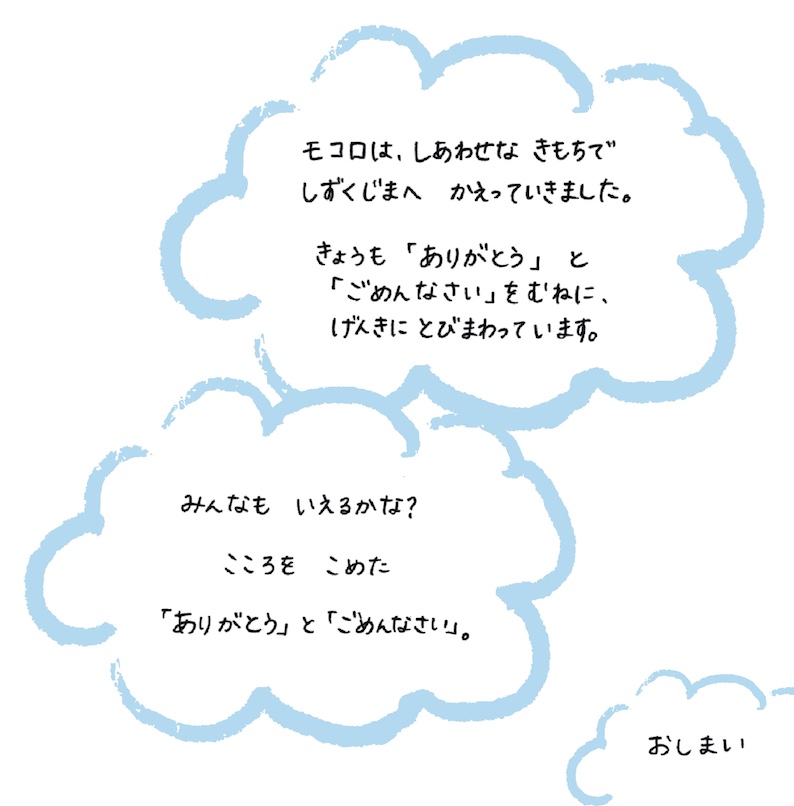 モコロは、しあわせな きもちで
しずくじまへ　かえっていきました。
きょうも 「ありがとう」 と
「ごめんなさい」を むねに、
げんきに とびまわっています。
みんなも　いえるかな?
こころを　こめた
「ありがとう」と「ごめんなさい」。
おしまい